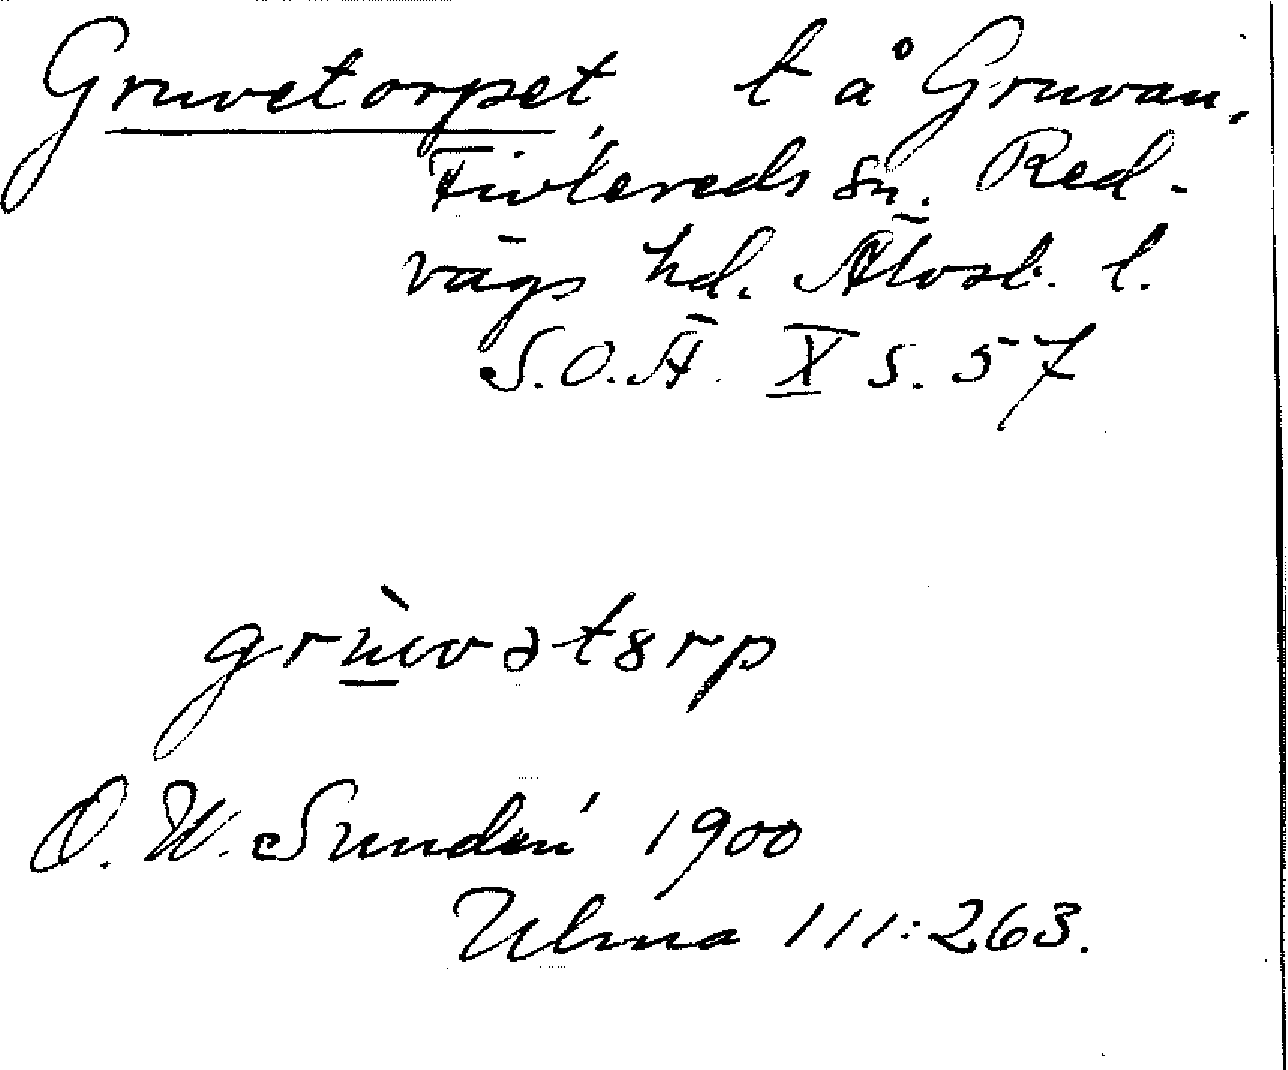 Gruvetorpet, t å Gruvan,
Fivlereds sn. Red-
vägs hd. Älvsb. l.
S.O.Ä. X s. 57
O. W. Sundén 1900
Ulma 111:263.